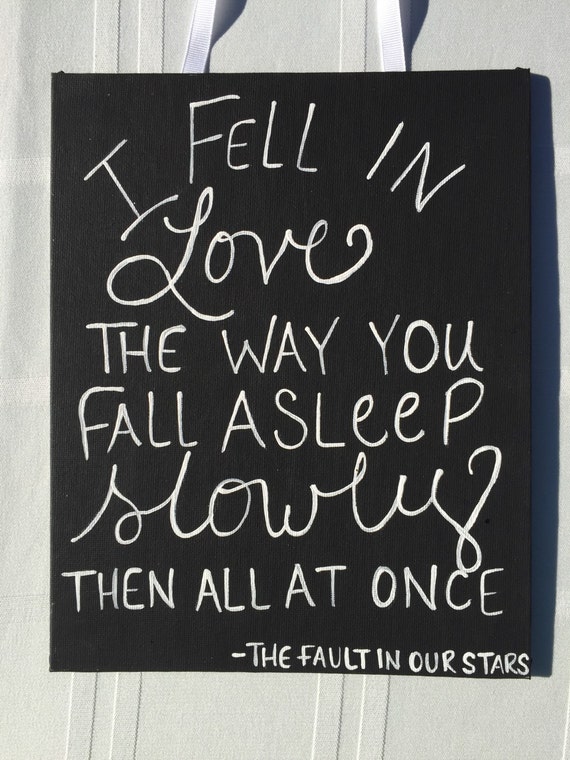 I FELL IN
Love
THE WAY YOU
FALL ASLeeP
slowly
THEN ALL AT ONCE
-THE FAULT IN OUR STARS